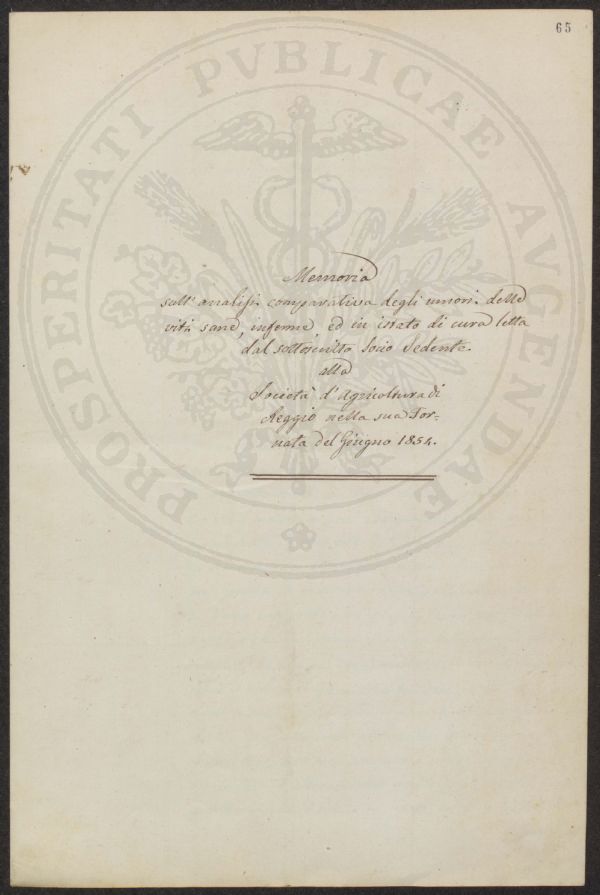 65
PROSPERITATI PVBLICAE AVGENDAE
Memoria
sull' analisi comparativa degli umori delle
viti sane, inferme, ed in istato di cura letta
dal sottoscritto Socio Sedente.
alla
Società d'Agricoltura di
Reggio nella sua Tor=
nata del Giugno 1854.